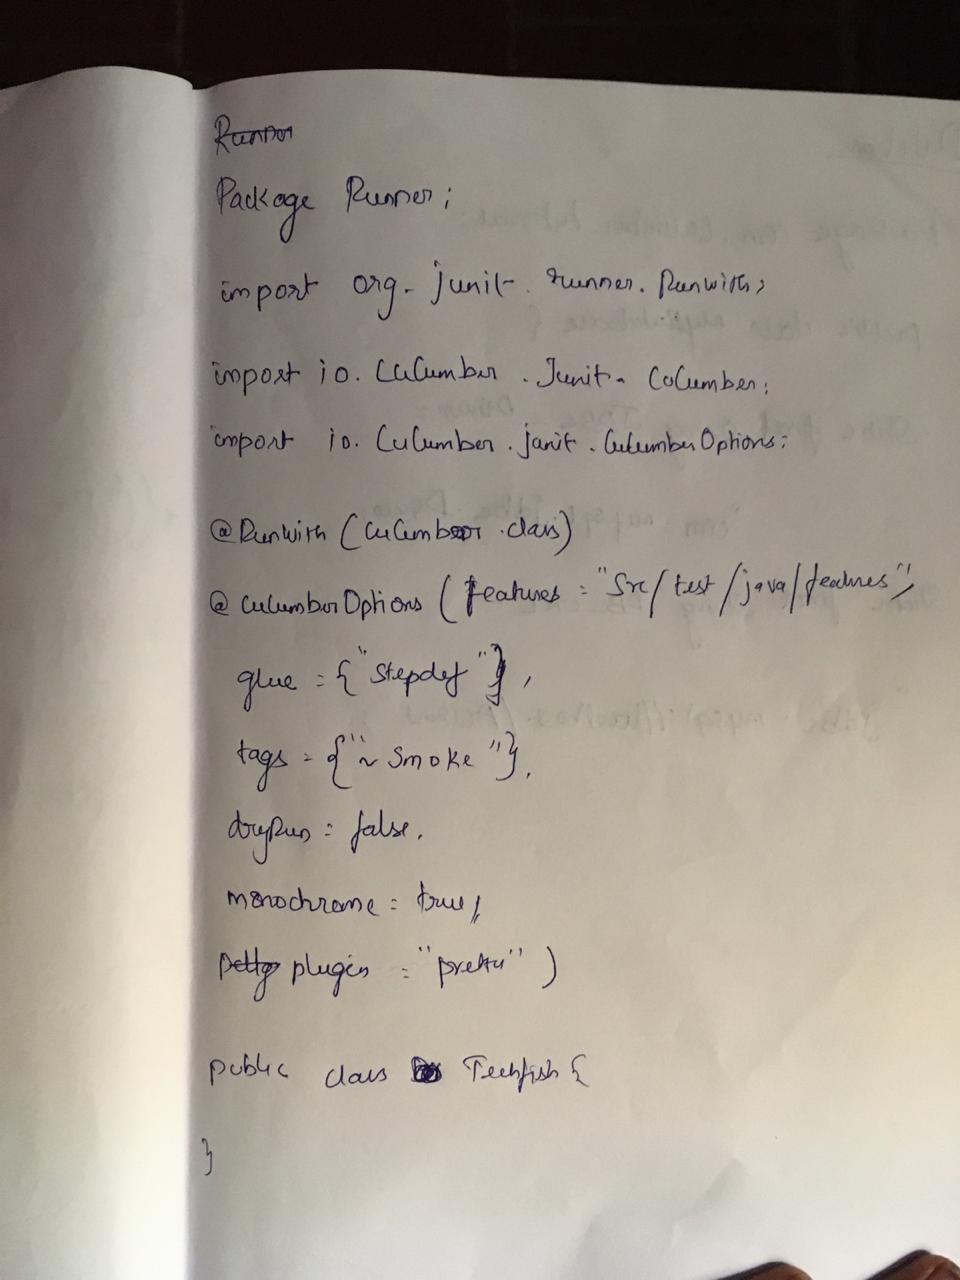 Runner
Package Runner;
import org. junit. runner. RunWith;
import io. CuCumber . Junit. CoCumber;
import io. CuCumber . junit . CucumberOptions;
@RunWith (CuCumber .class)
@ CucumberOptions ( features = "Src/test/java/features",
glue = {"Stepdef"},
tags = {"~ Smoke "},
dryRun = false,
monochrome = true,
plugin = "pretty" )
public class Techfish {
}